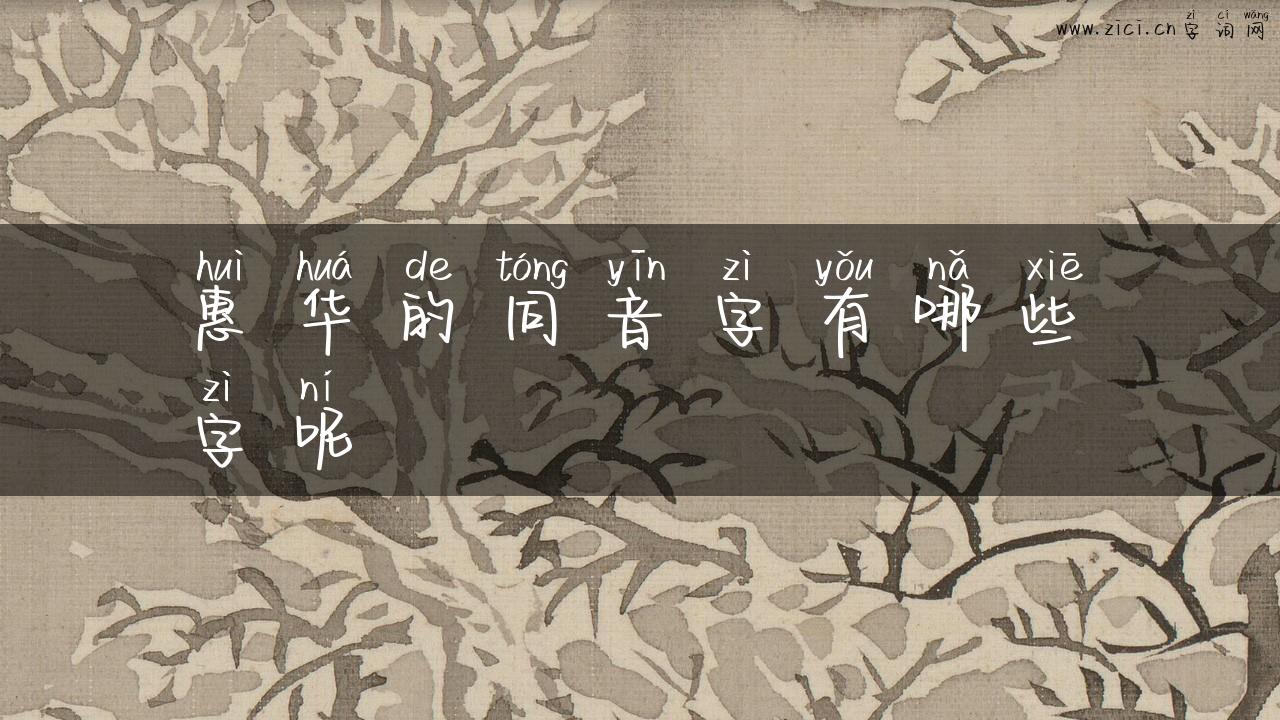 zì cí wǎng
www.zici.cn字词网
huì huá de tóng yīn zì yǒu nǎ xiē
惠华的同音字有哪些
zì ní
字呢